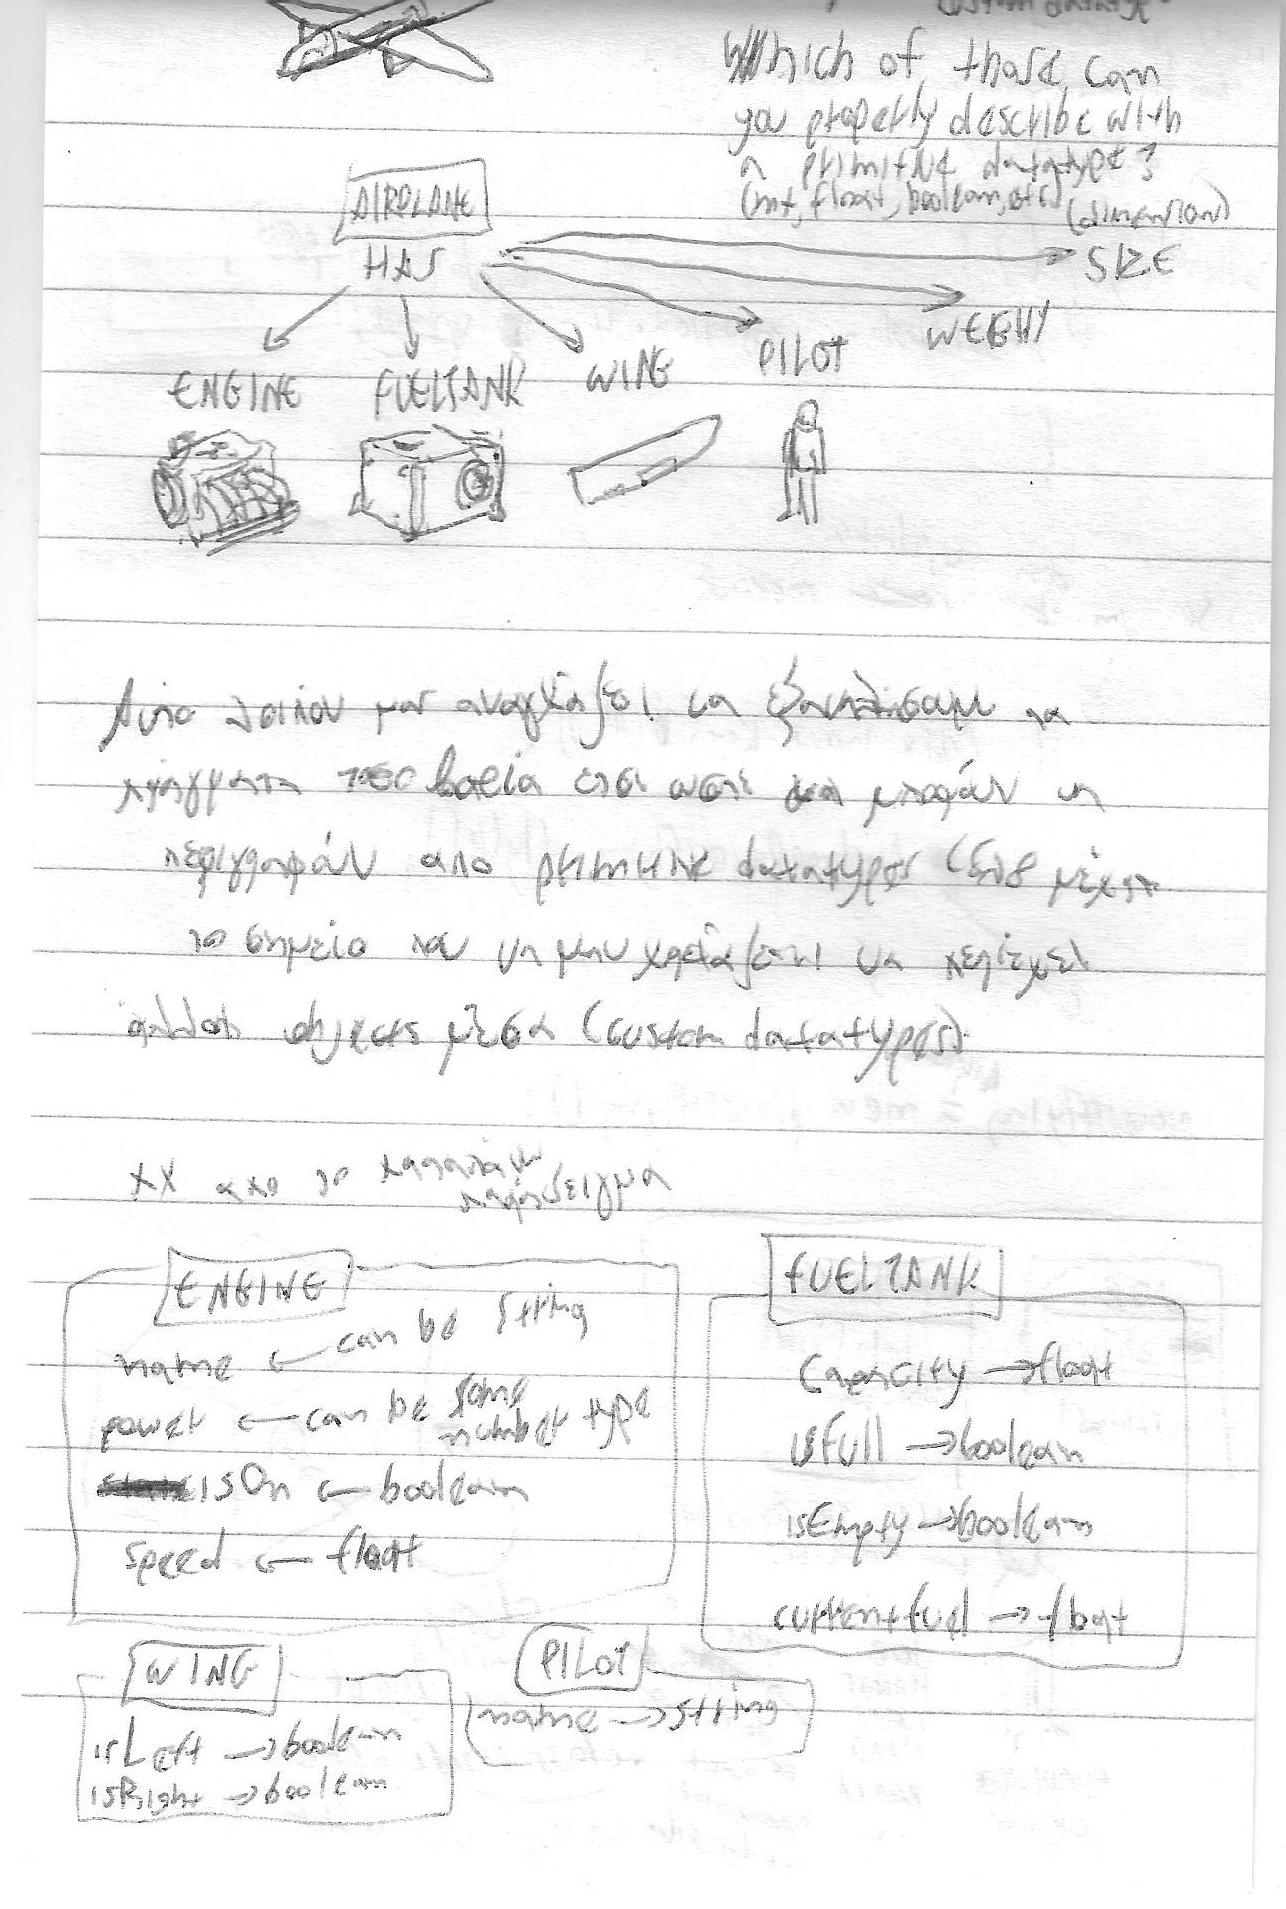 custom datatype
Which of those can
you properly describe with
a primitive datatype?
(int, float, boolean, etc)
(dimension)
AIRPLANE
HAS
SIZE
WEIGHT
PILOT
WING
ENGINE
FUELTANK
Αυτο λοιπον μας αναγκάζει να τα
πράγματα τοσο βαθεία ετσι ωστε να μπορούν να
περιγραφούν απο primitive datatypes (δηλ μέχρι
το σημείο που να μην χρειάζεται να περιέχει
άλλα objects μέσα (custom datatypes).
πχ απο το παραπάνω
παράδειγμα
ENGINE
name ← can be string
power ← can be some
number type
isOn ← boolean
speed ← float
FUELTANK
Capacity → float
isFull → boolean
isEmpty → boolean
currentfuel → float
WING
isLeft → boolean
isRight → boolean
PILOT
name → string